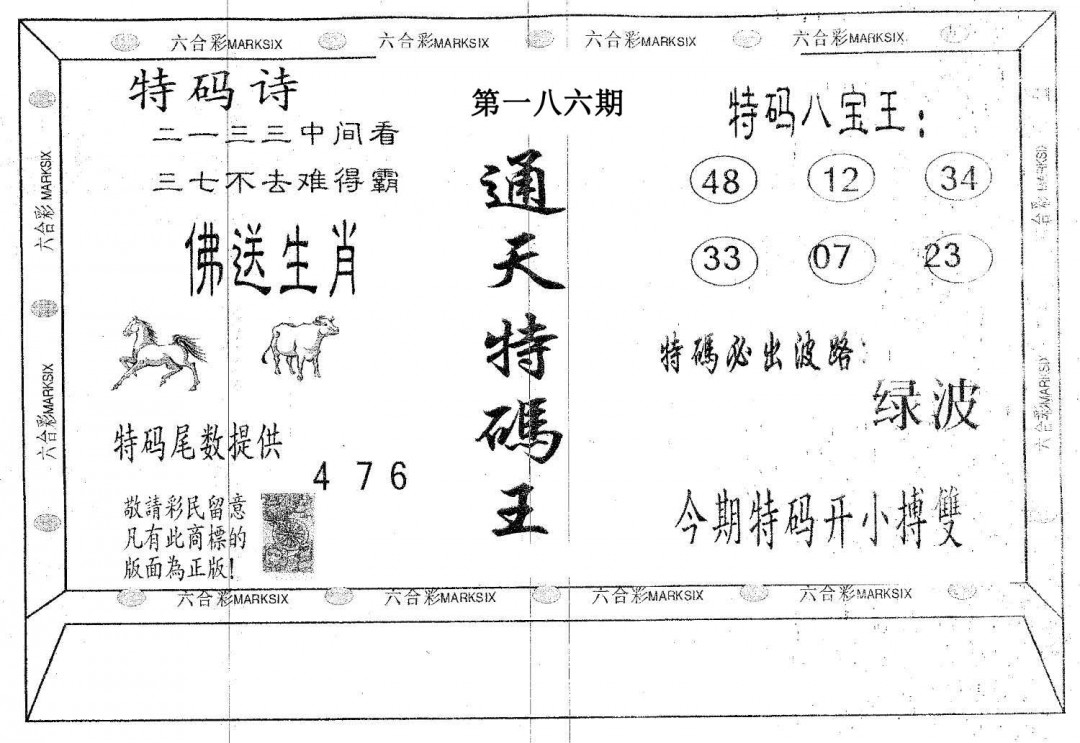 六合彩MARKSIX
六合彩MARKSIX
六合彩MARKSIX
六合彩MARKSIX
特码诗
二一三三中间看
三七不去难得霸
佛送生肖
特码尾数提供
4 7 6
敬請彩民留意
凡有此商標的
版面為正版!
第一八六期
通天特碼王
特码八宝王:
48 12 34
33 07 23
特碼必出波路:
绿波
今期特码开小搏雙
六合彩MARKSIX
六合彩MARKSIX
六合彩MARKSIX
六合彩MARKSIX
六合彩MARKSIX
六合彩MARKSIX
六合彩MARKSIX
六合彩MARKSIX